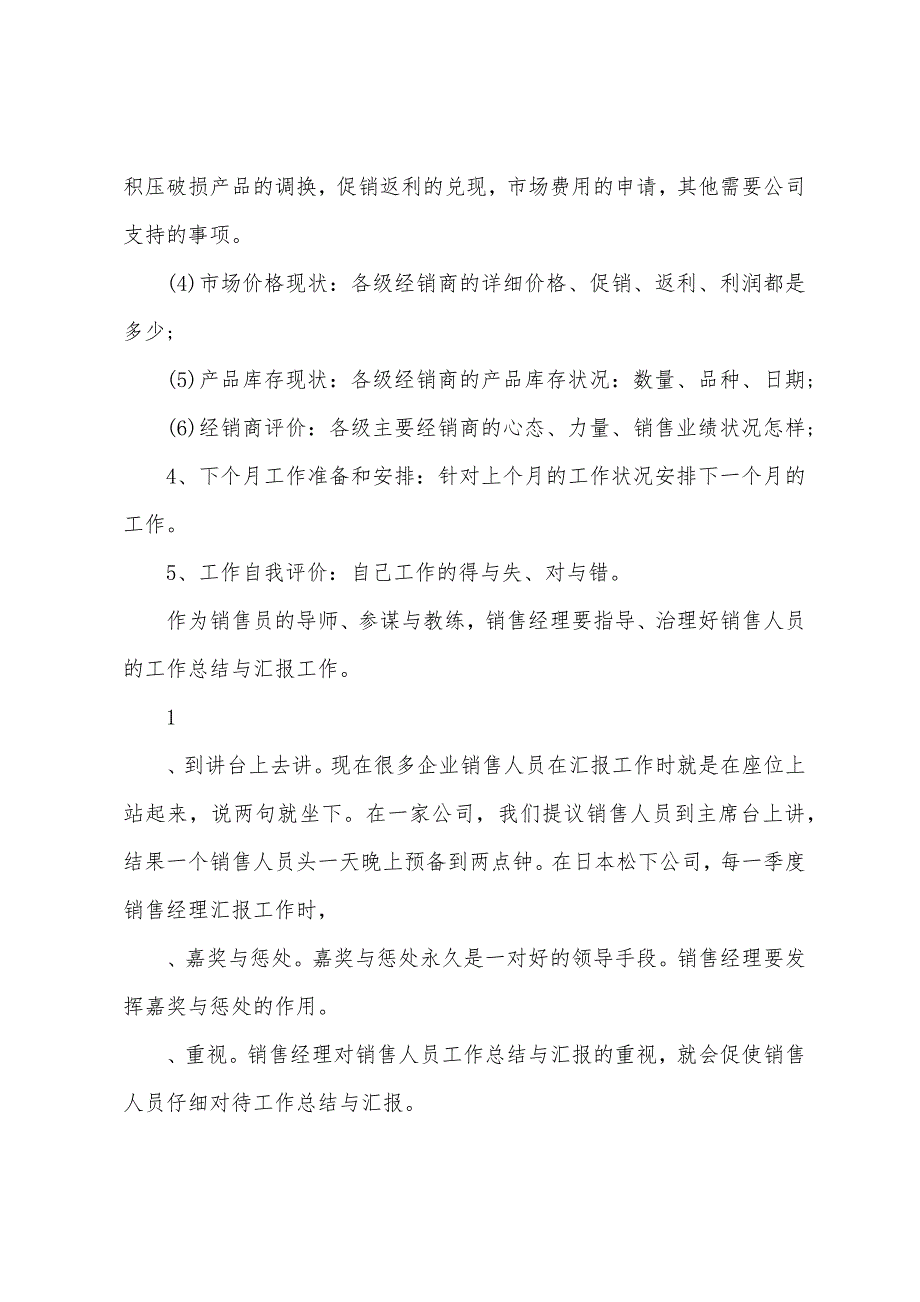 积压破损产品的调换，促销返利的兑现，市场费用的申请，其他需要公司
支持的事项。
(4)市场价格现状：各级经销商的详细价格、促销、返利、利润都是
多少;
(5)产品库存现状：各级经销商的产品库存状况：数量、品种、日期;
(6)经销商评价：各级主要经销商的心态、力量、销售业绩状况怎样;
4、下个月工作准备和安排：针对上个月的工作状况安排下一个月的
工作。
5、工作自我评价：自己工作的得与失、对与错。
作为销售员的导师、参谋与教练，销售经理要指导、治理好销售人员
的工作总结与汇报工作。
1
、到讲台上去讲。现在很多企业销售人员在汇报工作时就是在座位上
站起来，说两句就坐下。在一家公司，我们提议销售人员到主席台上讲，
结果一个销售人员头一天晚上预备到两点钟。在日本松下公司，每一季度
销售经理汇报工作时，
、嘉奖与惩处。嘉奖与惩处永久是一对好的领导手段。销售经理要发
挥嘉奖与惩处的作用。
、重视。销售经理对销售人员工作总结与汇报的重视，就会促使销售
人员仔细对待工作总结与汇报。